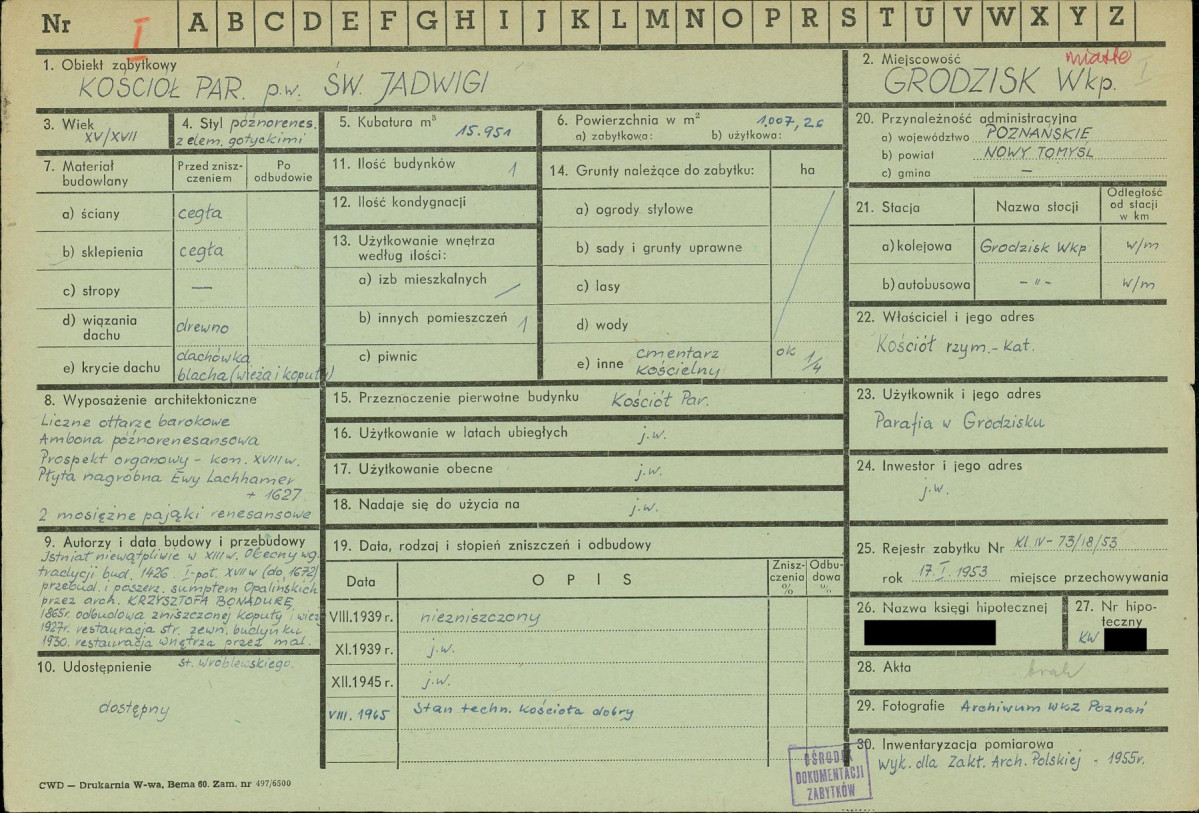 Nr I A B C D E F G H I J K L M N O P R S T U V W X Y Z
1. Obiekt zabytkowy
KOŚCIÓŁ PAR. p.w. ŚW. JADWIGI
2. Miejscowość miasto I
GRODZISK Wkp.
3. Wiek
XV/XVII
4. Styl późnorenes.
z elem. gotyckimi
5. Kubatura m³
15.951
6. Powierzchnia w m²
1.007,26
a) zabytkowa: b) użytkowa:
20. Przynależność administracyjna
a) województwo POZNAŃSKIE
b) powiat NOWY TOMYŚL
c) gmina —
7. Materiał budowlany
Przed zniszczeniem
Po odbudowie
a) ściany cegła
b) sklepienia cegła
c) stropy —
d) wiązania dachu drewno
e) krycie dachu dachówka
blacha (wieża i kopuły)
11. Ilość budynków 1
12. Ilość kondygnacji
13. Użytkowanie wnętrza
według ilości:
a) izb mieszkalnych
b) innych pomieszczeń 1
c) piwnic
14. Grunty należące do zabytku: ha
a) ogrody stylowe
b) sady i grunty uprawne
c) lasy
d) wody
e) inne cmentarz
kościelny
ok 1/4
21. Stacja Nazwa stacji Odległość od stacji w km
a) kolejowa Grodzisk Wkp w/m
b) autobusowa — " — w/m
22. Właściciel i jego adres
Kościół rzym.-kat.
8. Wyposażenie architektoniczne
Liczne ołtarze barokowe
Ambona późnorenesansowa
Prospekt organowy - kon. XVIII w.
Płyta nagrobna Ewy Lachhamer
+ 1627
2 mosiężne pająki renesansowe
15. Przeznaczenie pierwotne budynku Kościół Par.
16. Użytkowanie w latach ubiegłych j.w.
17. Użytkowanie obecne j.w.
18. Nadaje się do użycia na j.w.
23. Użytkownik i jego adres
Parafia w Grodzisku
24. Inwestor i jego adres
j.w.
9. Autorzy i data budowy i przebudowy
Istniał niewątpliwie w XIII w. Obecny wg.
tradycji bud. 1426. I-poł. XVII w (do 1672)
przebud. i poszerz. sumptem Opalińskich
przez arch. KRZYSZTOFA BONADURĘ
1865r. odbudowa zniszczonej kopuły i wieży
1927r. restauracja str. zewn. budynku
1930. restauracja wnętrza przez mal.
St. Wróblewskiego.
10. Udostępnienie
dostępny
19. Data, rodzaj i stopień zniszczeń i odbudowy
Data OPIS Zniszczenia % Odbudowa %
VIII.1939 r. niezniszczony
XI.1939 r. j.w.
XII.1945 r. j.w.
VIII.1965 Stan techn. kościoła dobry
25. Rejestr zabytku Nr kl.IV-73/18/53
rok 17.I.1953 miejsce przechowywania
26. Nazwa księgi hipotecznej
27. Nr hipoteczny
KW
28. Akta brak
29. Fotografie Archiwum WKZ Poznań
30. Inwentaryzacja pomiarowa
Wyk. dla Zakł. Arch. Polskiej - 1955r.
OŚRODEK
DOKUMENTACJI
ZABYTKÓW
CWD — Drukarnia W-wa, Bema 60. Zam. nr 497/6500